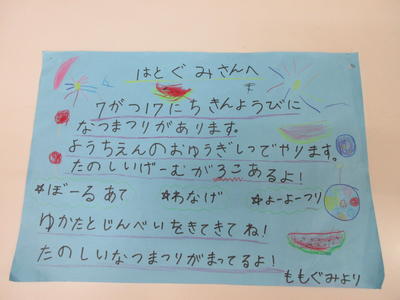 はとぐみさんへ
7がつ17にちきんようびに
なつまつりがあります。
ようちえんのおゆうぎしつでやります。
たのしいげーむが3こあるよ!
☆ぼーるあて ☆わなげ ☆よーよーつり
ゆかたとじんべいをきてきてね!
たのしいなつまつりがまってるよ!
ももぐみより